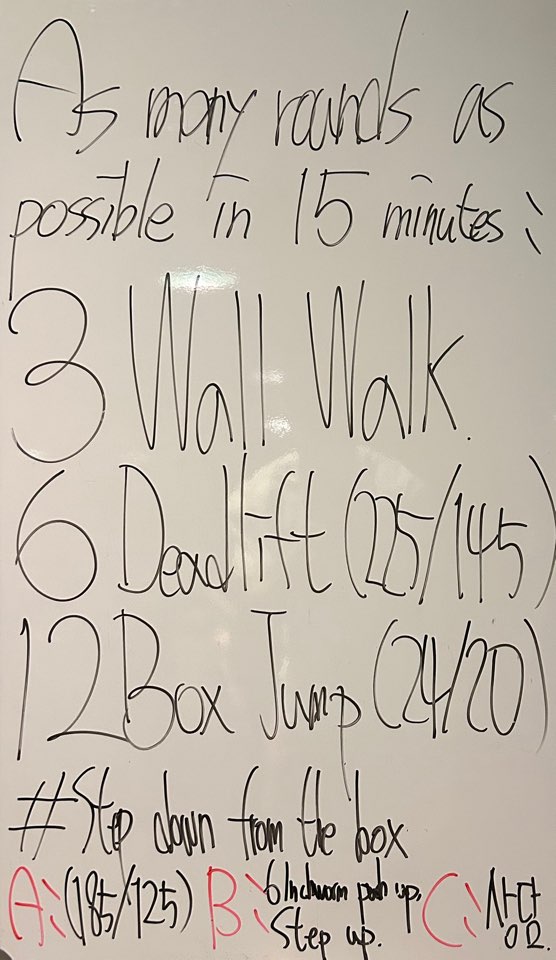 As many rounds as
possible in 15 minutes:
3 Wall Walk.
6 Deadlift (225/145)
12 Box Jump (24/20)
#Step down from the box
A: (185/125) B: 6 Inchworm push up, C: 상담
Step up. 요.